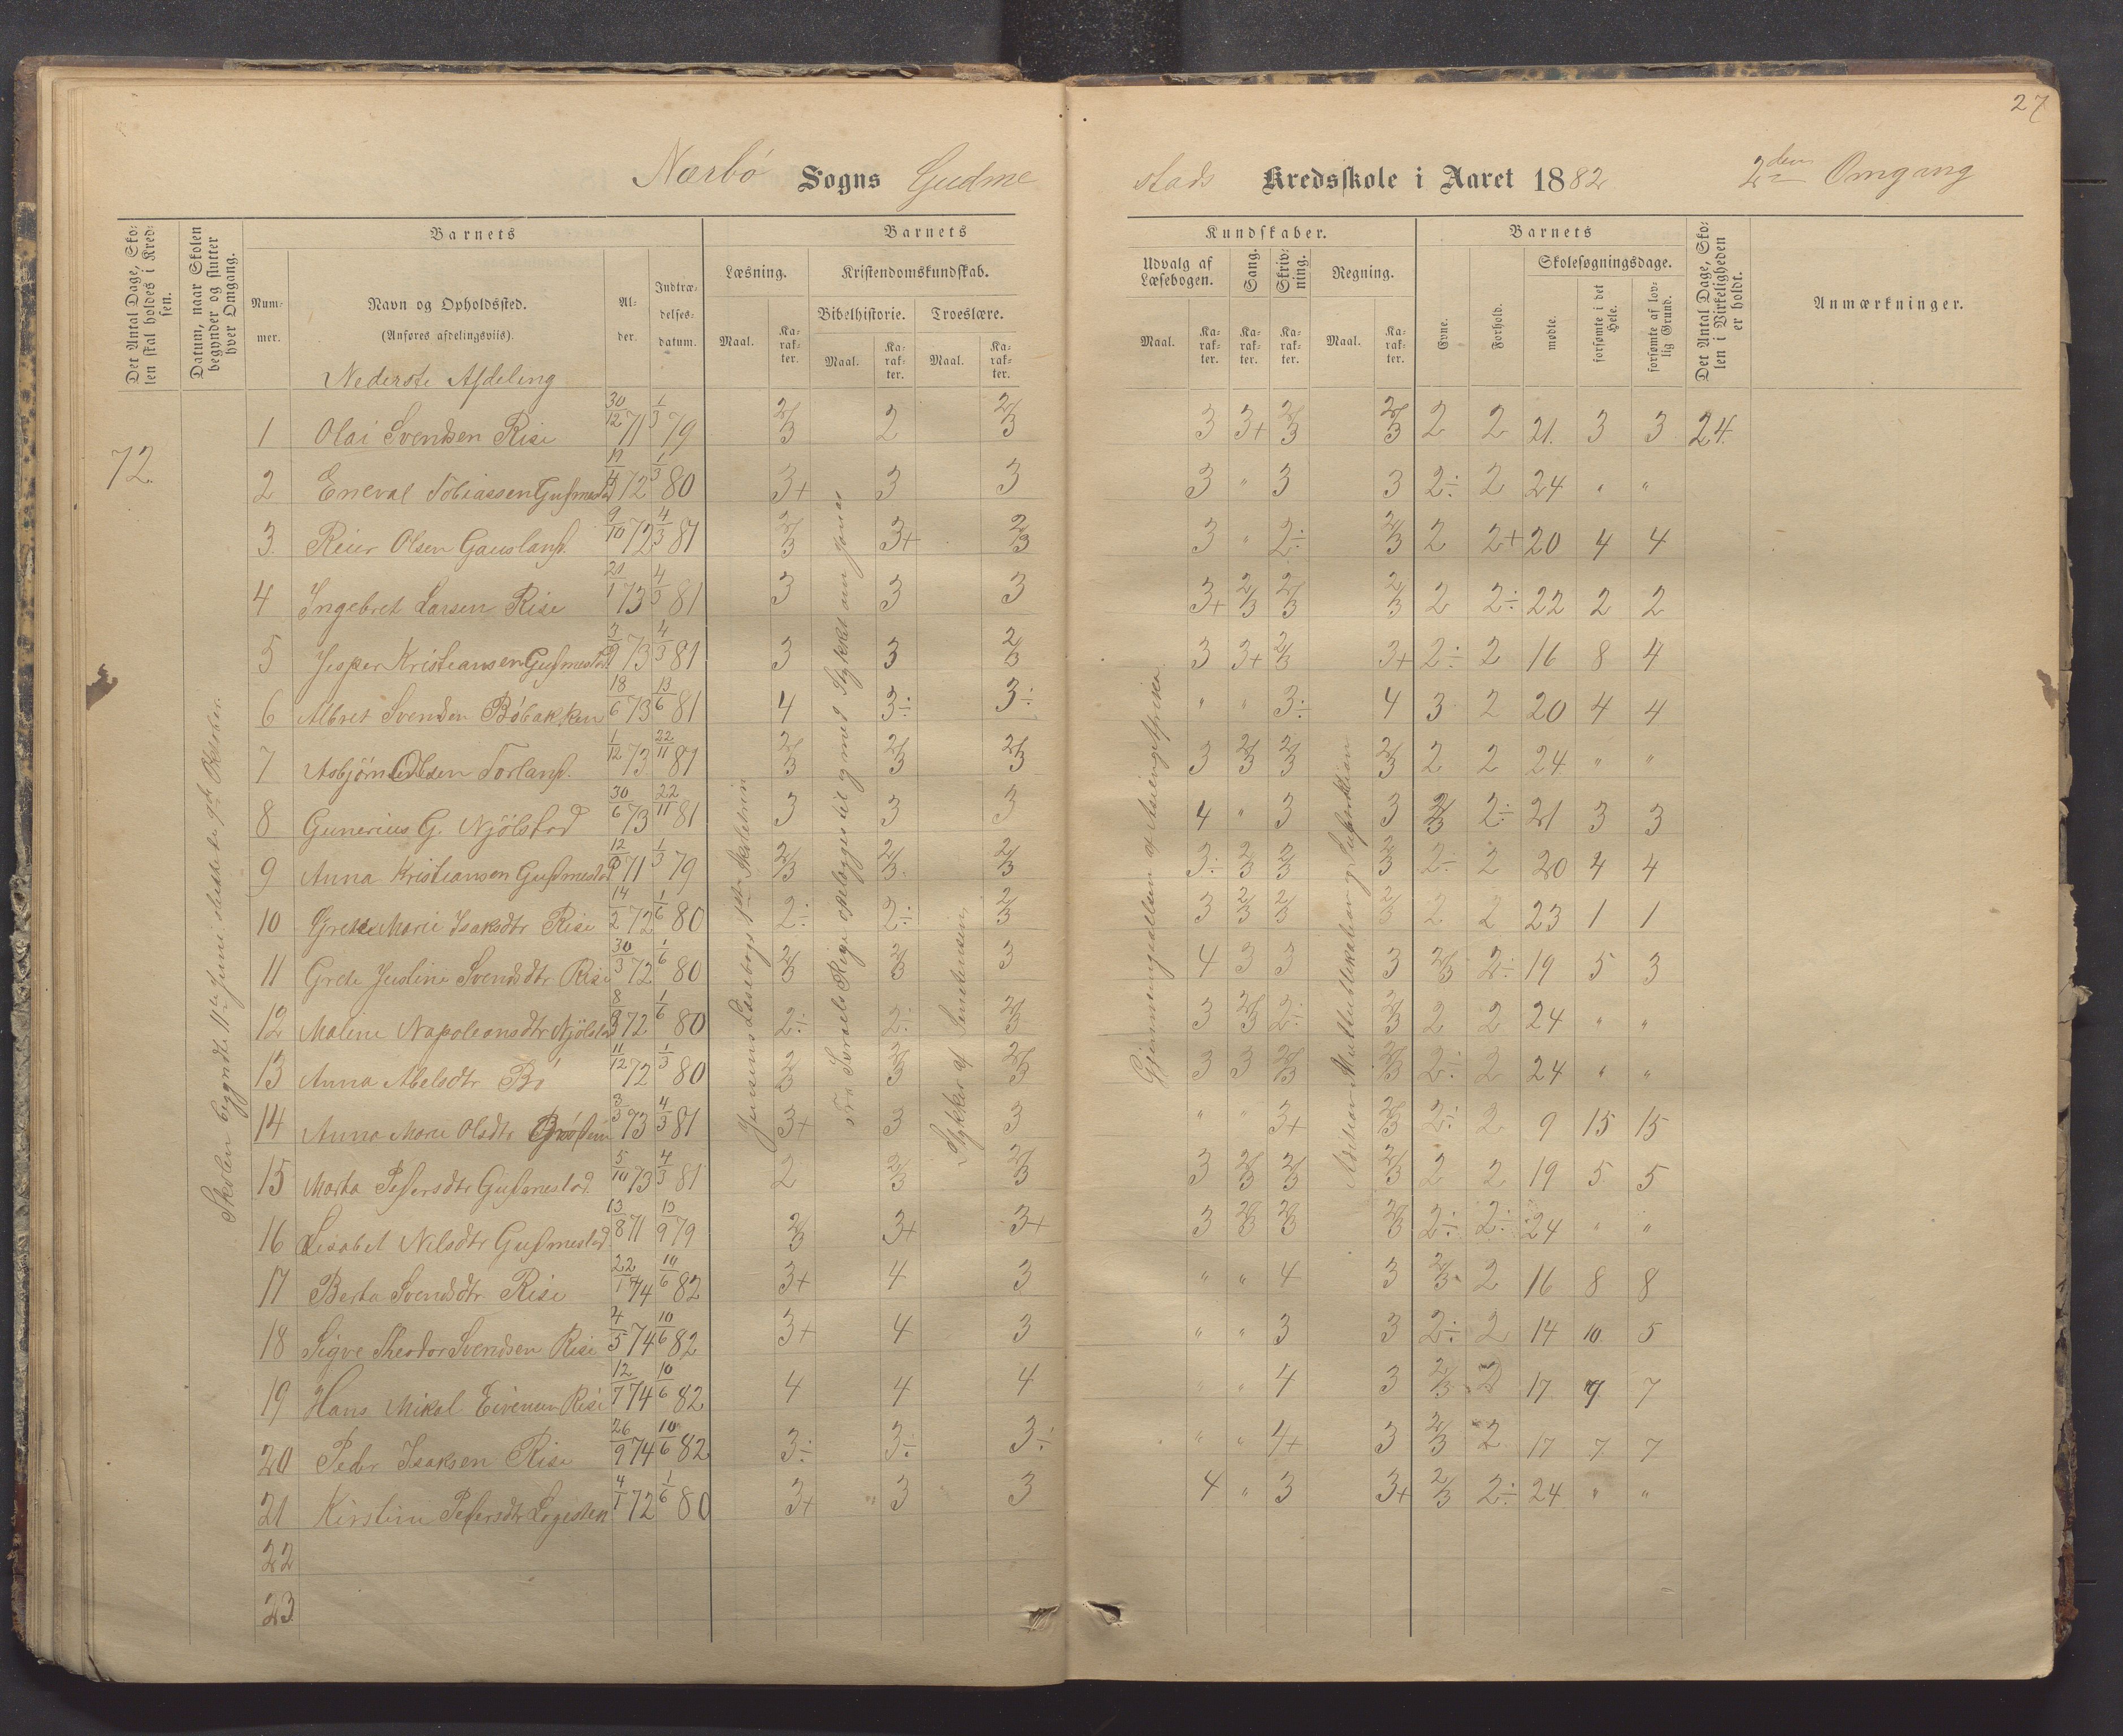 27
Nærbø Sogns Gudme stads Kredsskole i Aaret 1882 2den Omgang
Det Antal Dage, Skolen skal holdes i Kredsen.
Datum, naar Skolen begynder og slutter hver Omgang.
Barnets
Nummer.
Navn og Opholdssted.
(Anføres afdelingsviis).
Alder.
Indtrædelsesdatum.
Barnets Kundskaber.
Læsning.
Maal. Karakter.
Kristendomskundskab.
Bibelhistorie. Troeslære.
Maal. Karakter. Maal. Karakter.
Udvalg af Læsebogen.
Maal. Karakter.
Sang.
Karakter.
Skrivning.
Karakter.
Regning.
Maal. Karakter.
Barnets
Evne.
Forhold.
Skolesøgningsdage.
mødte.
forsømte i det Hele.
forsømte af lovlig Grund.
Det Antal Dage, Skolen i Virkeligheden er holdt.
Anmærkninger.
Nederste Afdeling
72.
1 Olai Svendsen Rise 30/12 71 1/3 79 2/3 2 2/3 3 3+ 2/3 2/3 2 2 21. 3 3 24.
2 Eneval Tobiassen Gudmestad 72 1/3 80 3+ 3 3 3 " 3 3 2÷ 2 24 " "
3. Reier Olsen Gausland. 9/10 72 4/3 81 2/3 3+ 2/3 3 " 2÷ 2/3 2 2+ 20 4 4
4 Ingebret Larsen Rise 21/1 73 4/3 81 3 3 3 3+ 2/3 2/3 2/3 2 2÷ 22 2 2
5 Jesper Kristiansen Gudmestad 73 4/3 81 3 3 2/3 3 3+ 2/3 3+ 2÷ 2 16 8 4
6 Albret Svendsen Bøbakken 18/6 73 13/6 81 4 3÷ 3÷ " " 3÷ 4 3 2 20 4 4
7 Asbjørn Olsen Torland. 1/12 73 22/11 81 2/3 2/3 2/3 3 2/3 2/3 2/3 2 2 24 " "
8 Gunerius G. Njölstad 30/6 73 22/11 81 3 3 3 4 " 3 3 2/3 2÷ 21 3 3
9 Anna Kristiansen Gudmestad 71 1/3 79 2/3 2/3 2/3 3÷ 2/3 2/3 2/3 2÷ 2 20 4 4
10 Grete Marie Isaksdtr Rise 14/2 72 1/6 80 2÷ 2÷ 2/3 3 2/3 2/3 2/3 2 2 23 1 1
11 Grete Justine Svendsdtr Rise 30/3 72 1/6 80 2/3 2/3 3 4 3 3 3 2/3 2÷ 19 5 3
12 Maline Napoleonsdtr Njölstad 72 1/6 80 2÷ 2÷ 2/3 3 2/3 2÷ 2/3 2 2 24 " "
13 Anna Abelsdtr Bø 11/12 72 1/3 80 2/3 2/3 2/3 3 3 2/3 2/3 2÷ 2 24 " "
14 Anna Marie Olsdtr 3/3 73 4/3 81 3+ 3 3 " " 3+ 2/3 2÷ 2 9 15 15
15 Marta Pedersdtr Gudmestad. 5/10 73 4/3 81 2 2/3 2/3 3 2/3 2/3 2/3 2 2 19 5 5
16 Lisabet Nilsdtr Gudmestad 13/8 71 13/9 79 2/3 3+ 3+ 3 2/3 2/3 2/3 2÷ 2÷ 24 " "
17 Berta Svendsdtr Rise 22/1 74 10/6 82 3+ 4 3 " " 4 3 2/3 2 16 8 8
18 Sigve Theodor Svendsen Rise 4/5 74 10/6 82 3+ 4 3 " " 3 3 2÷ 2 14 10 5
19 Hans Mikal Rise 12/7 74 10/6 82 4 4 4 " " 4 3 2/3 2 17 7 7
20 Peder Isaksen Rise 26/9 74 10/6 82 3÷ 3÷ 3÷ " " 4+ 3 2/3 2 17 7 7
21 Kirstine Pedersdtr 4/1 72 1/6 80 3+ " 3 " 3 4 " 3 3+ 2/3 2÷ 24 " "
22
23
Skolen begyndte 11te Juni sluttede 9de Oktober.
Jensens Læsebogs 1ste Skoletrin
Fra Israels Rige opløstes til og med Stykket om Jonas
Stykker af Sententsen,
Gjennemgaaelsen af
Addition Multiplikation og Subtraktion